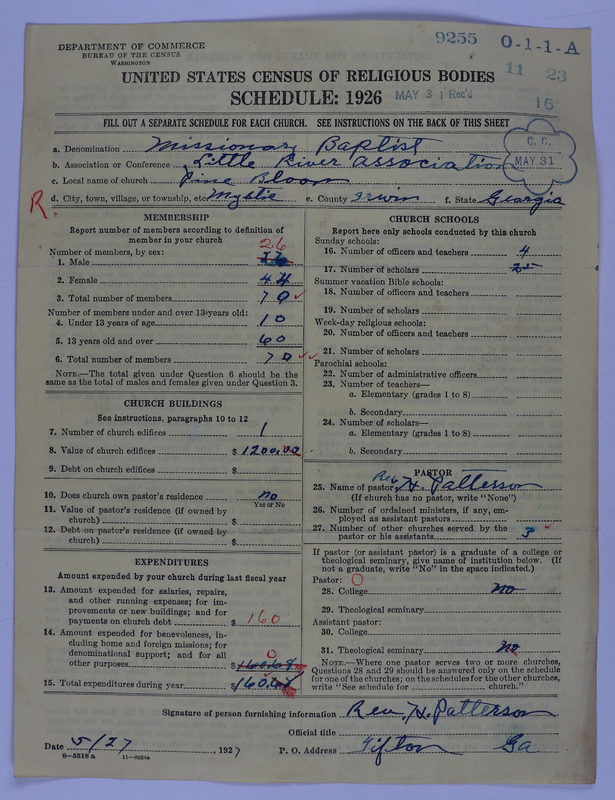 DEPARTMENT OF COMMERCE
BUREAU OF THE CENSUS
WASHINGTON
9255 O-1-1-A
11 23
16
UNITED STATES CENSUS OF RELIGIOUS BODIES
SCHEDULE: 1926 MAY 31 Rec'd
FILL OUT A SEPARATE SCHEDULE FOR EACH CHURCH. SEE INSTRUCTIONS ON THE BACK OF THIS SHEET
C. C.
MAY 31
a. Denomination Missionary Baptist
b. Association or Conference Little River association
c. Local name of church Pine Bloom
R. d. City, town, village, or township, etc. Mystic e. County Irwin f. State Georgia
MEMBERSHIP
Report number of members according to definition of
member in your church
Number of members, by sex:
26
1. Male
2. Female 44
3. Total number of members 70
Number of members under and over 13 years old:
4. Under 13 years of age 10
5. 13 years old and over 60
6. Total number of members 70
NOTE.—The total given under Question 6 should be the
same as the total of males and females given under Question 3.
CHURCH BUILDINGS
See instructions, paragraphs 10 to 12
7. Number of church edifices 1
8. Value of church edifices $ 1200.00
9. Debt on church edifices $
10. Does church own pastor's residence no
Yes or No
11. Value of pastor's residence (if owned by
church) $
12. Debt on pastor's residence (if owned by
church) $
EXPENDITURES
Amount expended by your church during last fiscal year
13. Amount expended for salaries, repairs,
and other running expenses; for im-
provements or new buildings; and for
payments on church debt $ 160
14. Amount expended for benevolences, in-
cluding home and foreign missions; for
denominational support; and for all
other purposes $ 0
15. Total expenditures during year $ 160
CHURCH SCHOOLS
Report here only schools conducted by this church
Sunday schools:
16. Number of officers and teachers 4
17. Number of scholars 25
Summer vacation Bible schools:
18. Number of officers and teachers
19. Number of scholars
Week-day religious schools:
20. Number of officers and teachers
21. Number of scholars
Parochial schools:
22. Number of administrative officers
23. Number of teachers—
a. Elementary (grades 1 to 8)
b. Secondary
24. Number of scholars—
a. Elementary (grades 1 to 8)
b. Secondary
PASTOR
25. Name of pastor Rev. H. Patterson
(If church has no pastor, write "None")
26. Number of ordained ministers, if any, em-
ployed as assistant pastors
27. Number of other churches served by the
pastor or his assistants 3
If pastor (or assistant pastor) is a graduate of a college or
theological seminary, give name of institution below. (If
not a graduate, write "No" in the space indicated.)
Pastor: O
28. College no
29. Theological seminary
Assistant pastor:
30. College
31. Theological seminary no
NOTE.—Where one pastor serves two or more churches,
Questions 28 and 29 should be answered only on the schedule
for one of the churches; on the schedules for the other churches,
write "See schedule for church."
Signature of person furnishing information Rev. H. Patterson
Official title
Date 5/27, 1927 P. O. Address Tifton Ga
8—5518 a 11—9051a